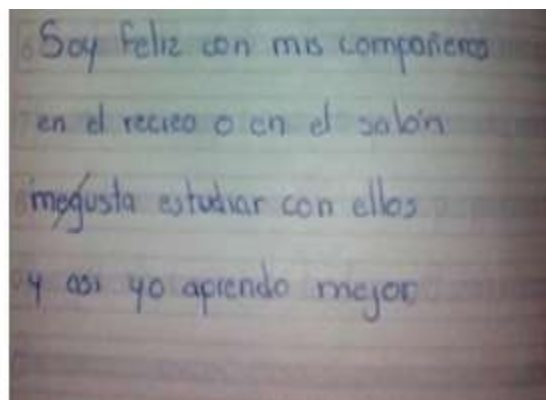 Soy feliz con mis compañeros
en el recreo o en el salón
me/gusta estudiar con ellos
y asi yo aprendo mejor